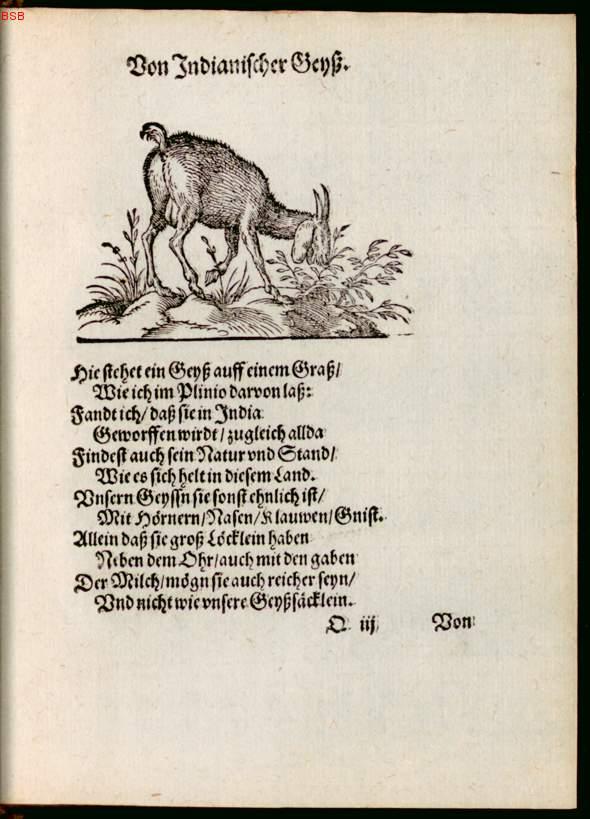 BSB
Von Indianischer Geyß.
Hie stehet ein Geyß auff einem Graß/
Wie ich im Plinio darvon laß:
Fandt ich/ daß sie in India
Geworffen wirdt/ zugleich allda
Findest auch sein Natur vnd Stand/
Wie es sich helt in diesem Land.
Vnsern Geyssn sie sonst ehnlich ist/
Mit Hörnern/ Nasen/ Klauwen/ Gnist.
Allein daß sie groß Löcklein haben
Neben dem Ohr/ auch mit den gaben
Der Milch/ mögn sie auch reicher seyn/
Vnd nicht wie vnsere Geyßsäcklein.
Q iij Von